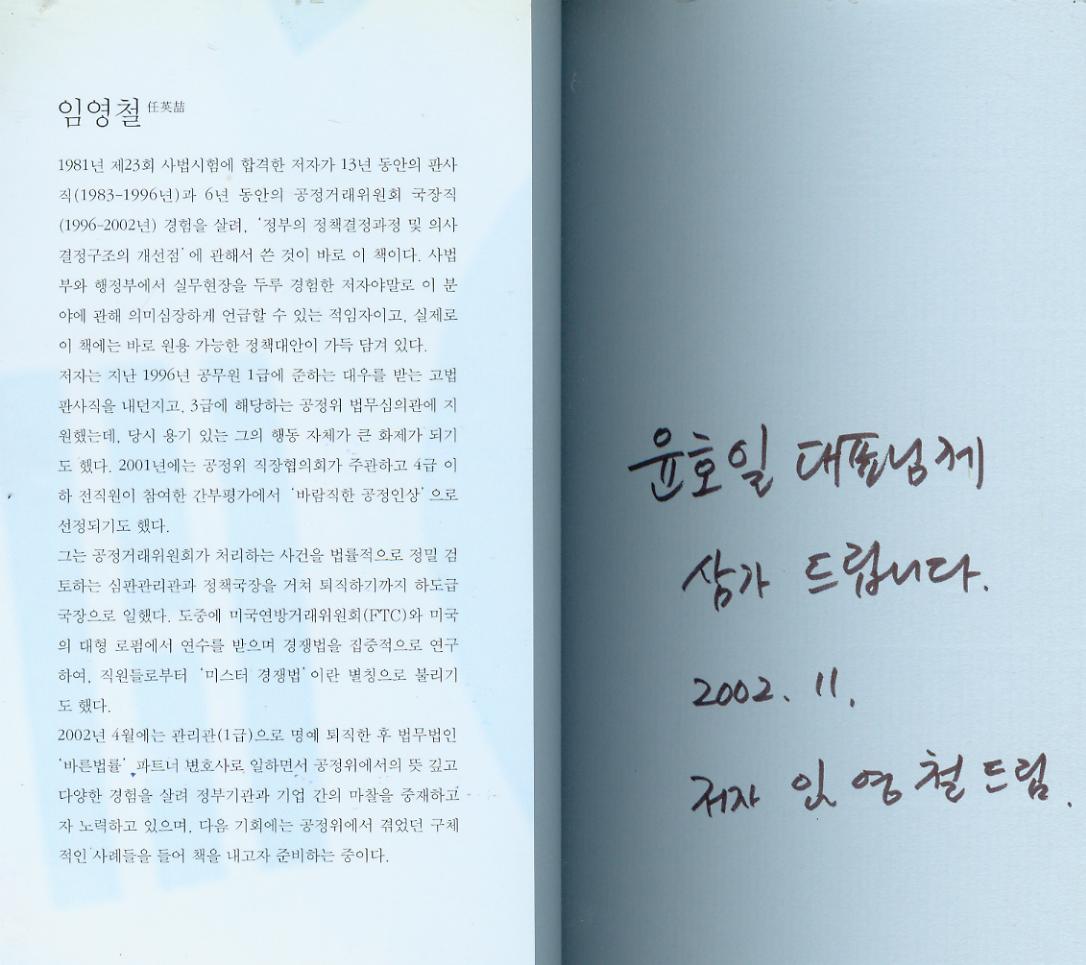 임영철 任英喆
1981년 제23회 사법시험에 합격한 저자가 13년 동안의 판사
직(1983-1996년)과 6년 동안의 공정거래위원회 국장직
(1996-2002년) 경험을 살려, ‘정부의 정책결정과정 및 의사
결정구조의 개선점’에 관해서 쓴 것이 바로 이 책이다. 사법
부와 행정부에서 실무현장을 두루 경험한 저자야말로 이 분
야에 관해 의미심장하게 언급할 수 있는 적임자이고, 실제로
이 책에는 바로 원용 가능한 정책대안이 가득 담겨 있다.
저자는 지난 1996년 공무원 1급에 준하는 대우를 받는 고법
판사직을 내던지고, 3급에 해당하는 공정위 법무심의관에 지
원했는데, 당시 용기 있는 그의 행동 자체가 큰 화제가 되기
도 했다. 2001년에는 공정위 직장협의회가 주관하고 4급 이
하 전직원이 참여한 간부평가에서 ‘바람직한 공정인상’으로
선정되기도 했다.
그는 공정거래위원회가 처리하는 사건을 법률적으로 정밀 검
토하는 심판관리관과 정책국장을 거쳐 퇴직하기까지 하도급
국장으로 일했다. 도중에 미국연방거래위원회(FTC)와 미국
의 대형 로펌에서 연수를 받으며 경쟁법을 집중적으로 연구
하여, 직원들로부터 ‘미스터 경쟁법’이란 별칭으로 불리기
도 했다.
2002년 4월에는 관리관(1급)으로 명예 퇴직한 후 법무법인
‘바른법률’ 파트너 변호사로 일하면서 공정위에서의 뜻 깊고
다양한 경험을 살려 정부기관과 기업 간의 마찰을 중재하고
자 노력하고 있으며, 다음 기회에는 공정위에서 겪었던 구체
적인 사례들을 들어 책을 내고자 준비하는 중이다.
윤호일 대표님께
삼가 드립니다.
2002. 11.
저자 임영철 드림.